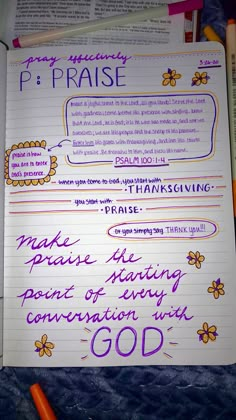 pray effectively
P: PRAISE
Make a joyful shout to the Lord, all you lands! Serve the Lord
with gladness; come before His presence with singing. Know
that the Lord, He is God; it is He who has made us, and not we
ourselves; we are His people and the sheep of His pasture.
Enter into His gates with thanksgiving, and into His courts
with praise. Be thankful to Him, and bless His name.
PSALM 100:1-4
praise is how
you are to enter
God's presence.
when you come to God, you start with
·THANKSGIVING·
you start with
·PRAISE·
Or you simply say, THANK YOU!!!
make
praise the
starting
point of every
conversation with
GOD